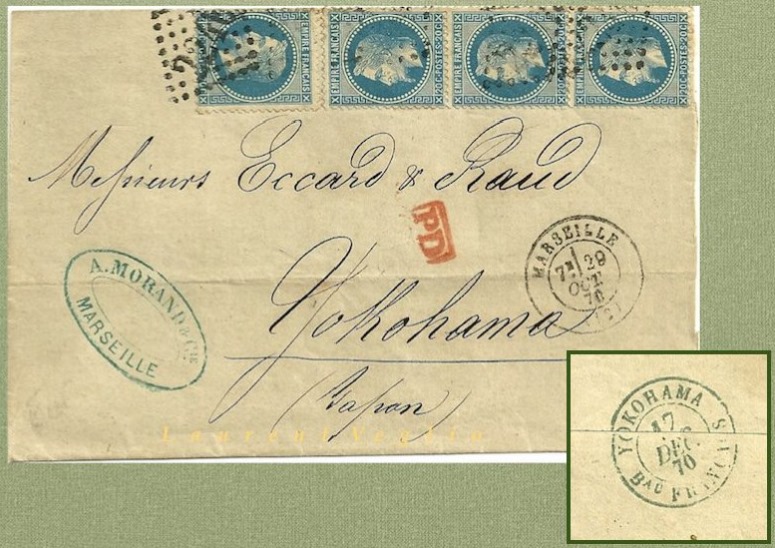 EMPIRE FRANÇAIS
EMPIRE FRANÇAIS 20C POSTES 20C
EMPIRE FRANÇAIS 20C POSTES 20C
EMPIRE FRANÇAIS 20C POSTES 20C
Messieurs Eccard & Raud
PD
MARSEILLE
29
OCT.
70
A. MORAND & CIE
MARSEILLE
Yokohama
(Japon)
YOKOHAMA
17
DEC.
70
BAU FRANÇAIS